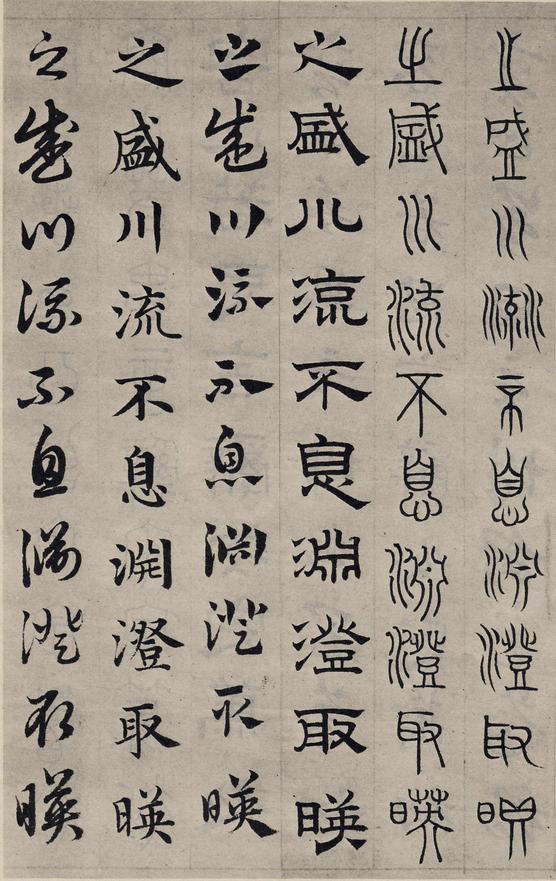 之盛川流不息淵澄取暎
之盛川流不息淵澄取暎
之盛川流不息淵澄取暎
之盛川流不息淵澄取暎
之盛川流不息淵澄取暎
之盛川流不息淵澄取暎